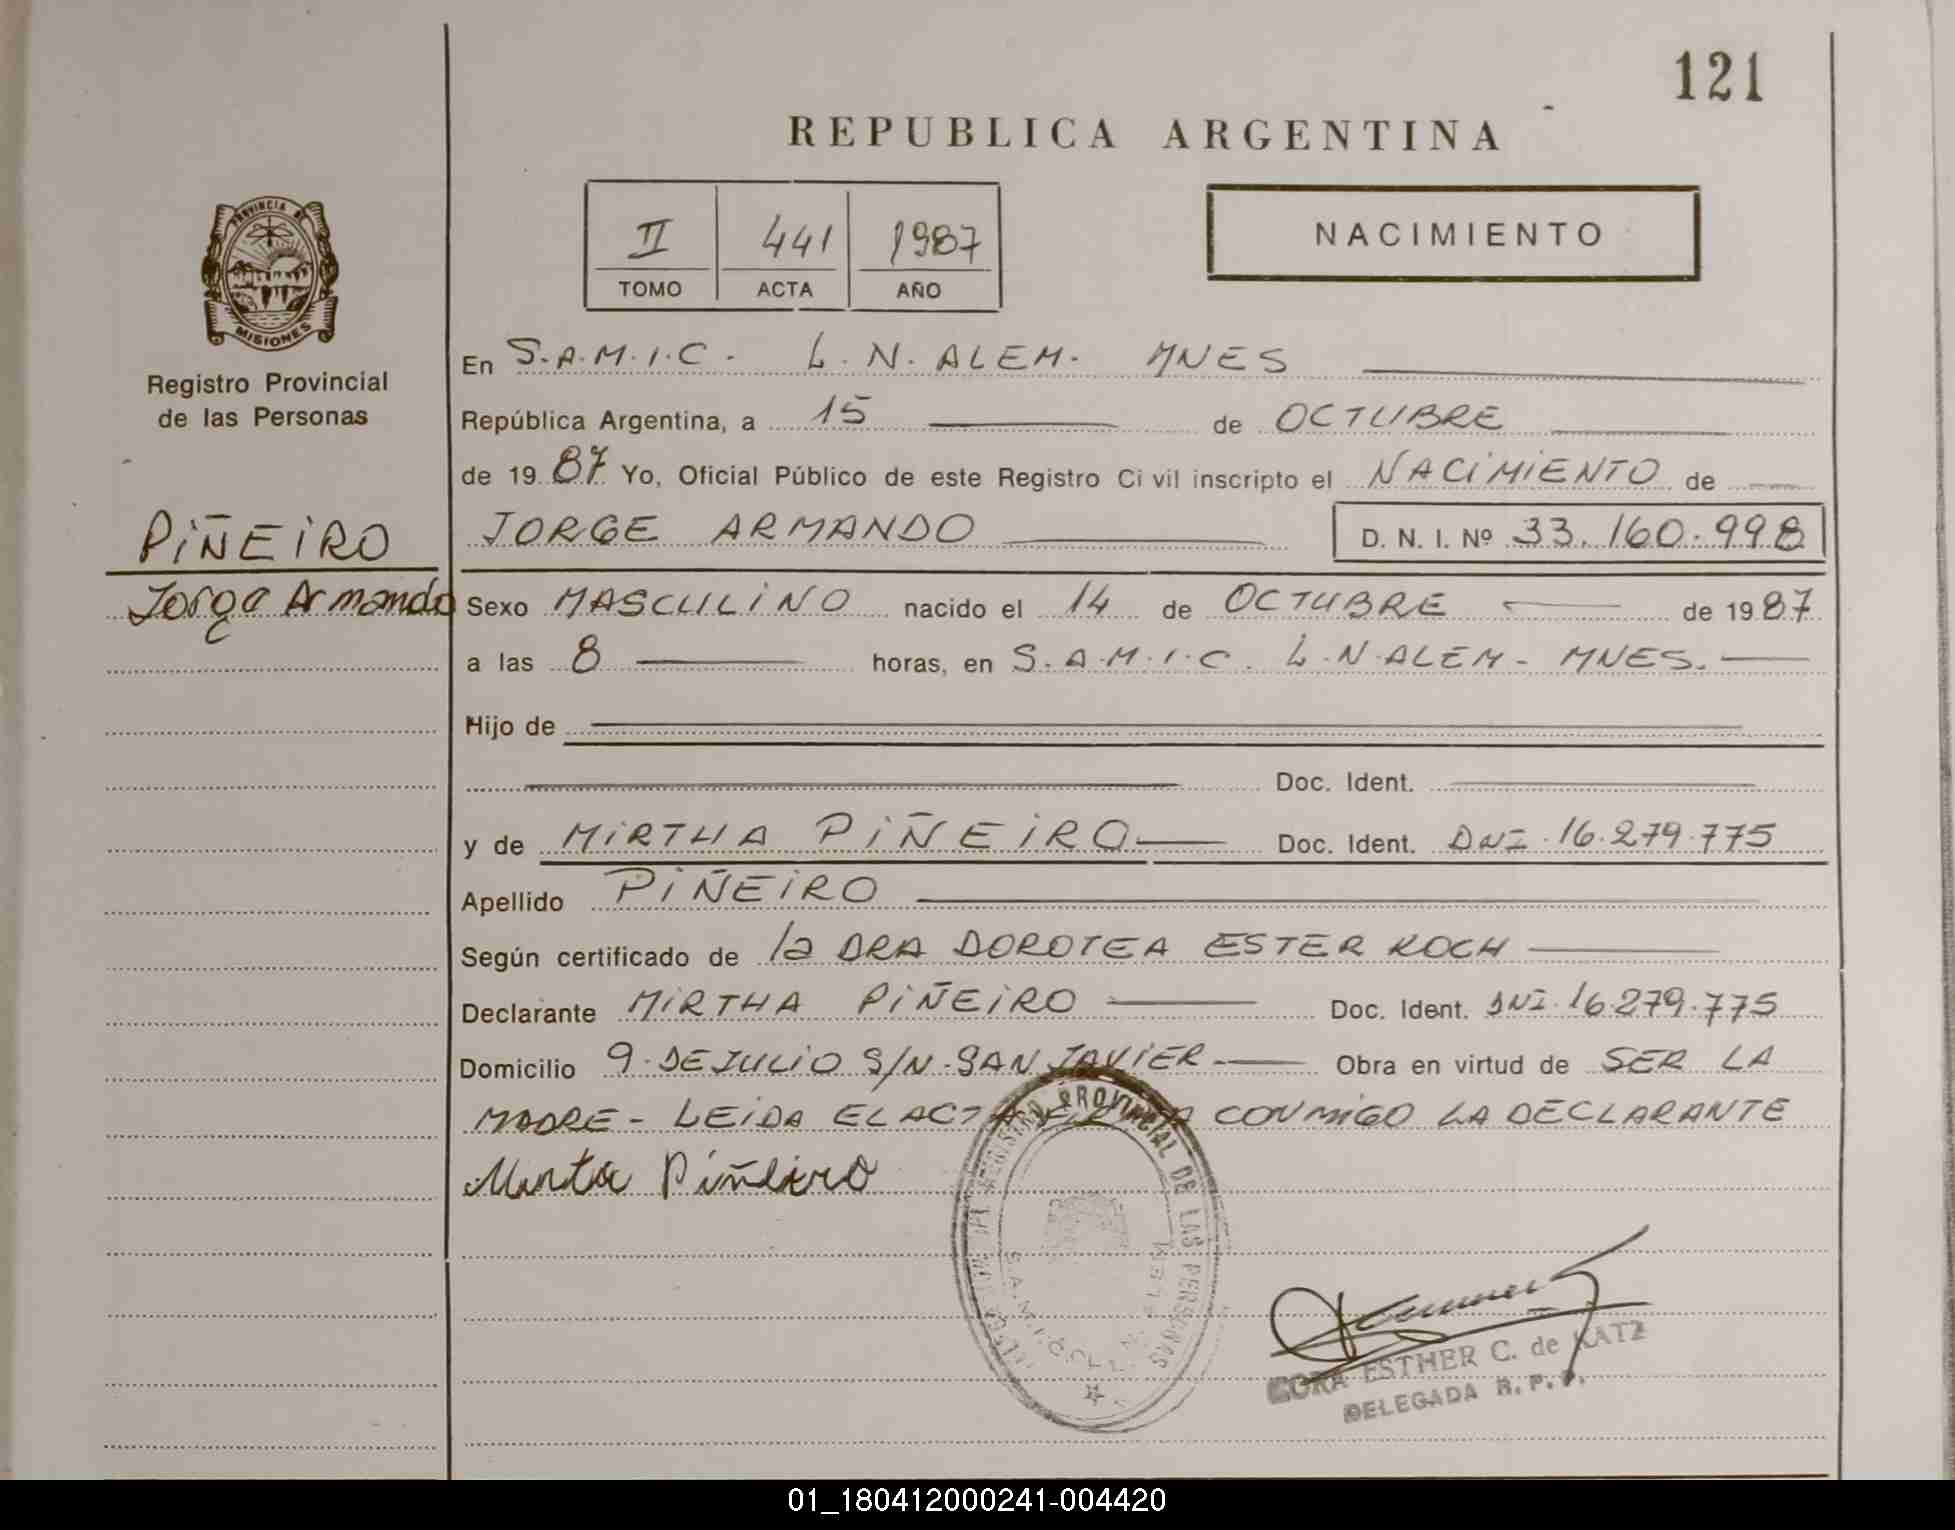 121
REPUBLICA ARGENTINA
II 441 1987
TOMO ACTA AÑO
NACIMIENTO
PROVINCIA DE
MISIONES
Registro Provincial
de las Personas
PIÑEIRO
Jorge Armando
En S.A.M.I.C. L.N. ALEM. MNES
República Argentina, a 15 de OCTUBRE
de 1987 Yo, Oficial Público de este Registro Civil inscripto el NACIMIENTO de
JORGE ARMANDO D. N. I. Nº 33.160.998
Sexo MASCULINO nacido el 14 de OCTUBRE de 1987
a las 8 horas, en S.A.M.I.C. L.N.ALEM - MNES.
Hijo de
Doc. Ident.
y de MIRTHA PIÑEIRO Doc. Ident. DNI 16.279.775
Apellido PIÑEIRO
Según certificado de la DRA DOROTEA ESTER KOCH
Declarante MIRTHA PIÑEIRO Doc. Ident. DNI 16.279.775
Domicilio 9 DE JULIO S/N - SAN JAVIER Obra en virtud de SER LA
MADRE - LEIDA EL ACTA CONMIGO LA DECLARANTE
Mirta Piñeiro
REGISTRO PROVINCIAL DE LAS PERSONAS
S.A.M.I.C. L. N. ALEM
ESTHER C. de KATZ
DELEGADA R. P. P.
01_180412000241-004420